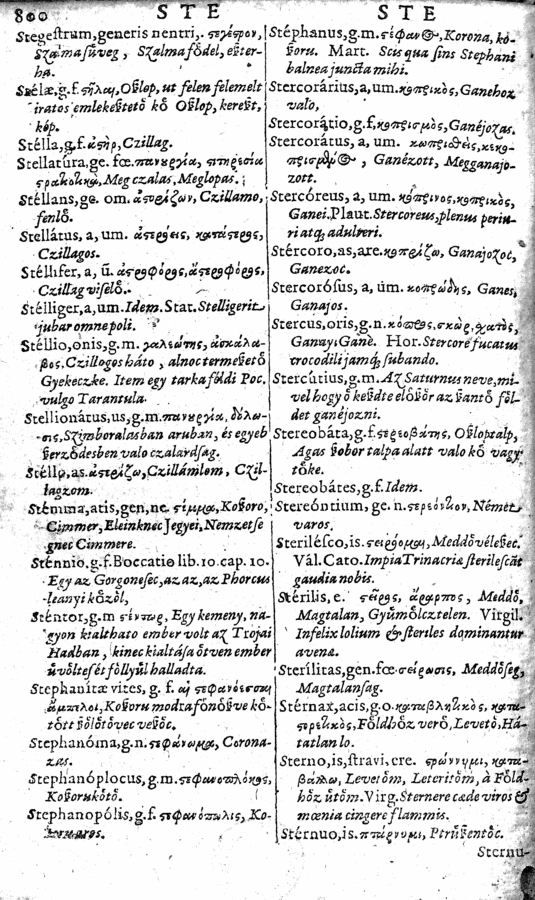 800 STE STE
Stegestrum, generis neutri, . στέγεστρον,
Szalma süveg, Szalma födel, ester-
ha.
Stelæ, g.f. στῆλαι, Oszlop, ut felen felemelt
iratos emlekeztető kő Oszlop, kereszt,
kép.
Stélla, g.f. ἀστὴρ, Czillag.
Stellatúra, ge. fœ. πανυργία,
Meg czalas, Meglopas.
Stéllans, ge. om. ἀστερίζων, Czillamo,
fenlő.
Stellátus, a, um. ἀστερόεις, κατάστερος,
Czillagos.
Stéllifer, a, ũ. ἀστερφόρος, ἀστερφόρος,
Czillag viselő.
Stélliger, a, um. Idem. Stat. Stelligerit
jubar omne poli.
Stéllio, onis, g.m. γαλεώτης, ἀσκάλα-
βος, Czillagos háto, alnoc termesző
Gyekeczke. Item egy tarka földi Poc.
vulgo Tarantula.
Stellionátus, us, g.m. πανυργία, δόλω-
σις, Szimboralasban aruban, és egyeb
szerződesben valo czalardsag.
Stéllo, as. ἀστερίζω, Czillámlom, Czil-
lagzom.
Stémma, atis, gen, ne. στέμμα, Koszoro,
Cimmer, Eleinknec Jegyei, Nemzetse
gnec Cimmere.
Sténnio, g.f. Boccatio lib. 10. cap. 10.
Egy az Gorgonesec, az az, az Phorcus
leanyi közöl,
Sténtor, g.m στέντωρ, Egy kemeny, na-
gyon kialthato ember volt az Trojai
Hadban, kinec kialtása ötven ember
üvöltesét föllyül halladta.
Stephanítæ vites, g. f. αἱ στεφανόεσσαι
ἄμπελοι, Koszoru modra fónószve kö-
tött szőlőtővec veszszőc.
Stephanóma, g.n. στεφάνωμα, Corona-
zas.
Stephanóplocus, g.m. στεφανοπλόκος,
Koszorukötő.
Stephanopólis, g.f. στεφανόπωλις, Ko-
szoru aros.
Stéphanus, g.m. στέφανος, Korona, ko-
szoru. Mart. Scis qua sins Stephani
balnea juncta mihi.
Stercorárius, a, um. κοπρικὸς, Ganehoz
valo,
Stercorátio, g.f, κοπρισμὸς, Ganéjozas.
Stercorátus, a, um. κοπρισθεὶς, κεκο-
πρισμένος, Ganézott, Megganajo-
zott.
Stercóreus, a, um. κόπρινος, κοπρικὸς,
Ganei. Plaut. Stercoreus, plenus periu-
ri atq; adulteri.
Stércoro, as, are. κοπρίζω, Ganajozoc,
Ganezoc.
Stercorósus, a, um. κοπρώδης, Ganes,
Ganajos.
Stercus, oris, g.n. κόπρος, σκὼρ, σκατὸς,
Ganay, Gané. Hor. Stercore fucatus
crocodili jamq; subando.
Stercútius, g.m. Az Saturnus neve, mi-
vel hogy ő kezdte elöször az szantó föl-
det ganéjozni.
Stereobáta, g.f. στερεοβάτης, Oszloptalp,
Agas szobor talpa alatt valo kő vagy
tőke.
Stereobátes, g.f. Idem.
Stereóntium, ge. n. στερεόντιον, Német
varos.
Steriléſco, is. στειρόομαι, Meddövélesec.
Vál. Cato. Impia Trinacria sterilescāt
gaudia nobis.
Stérilis, e. στεῖρος, ἄκαρπος, Meddö,
Magtalan, Gyümölcztelen. Virgil.
Infelix lolium & steriles dominantur
avenæ.
Sterílitas, gen. fœ. στείρωσις, Meddöseg,
Magtalansag.
Stérnax, acis, g.o. καταβλητικὸς, κατα-
στρετικὸς, Földhöz verö, Levetö, Há-
tatlan lo.
Sterno, is, stravi, ere. στρώννυμι, κατα-
βάλλω, Levetöm, Leteritöm, à Föld-
höz ütöm. Virg. Sternere cæde viros &
mœnia cingere flammis.
Stérnuo, is. πτάρνυμι, Ptrüszentöc.
Sternu-